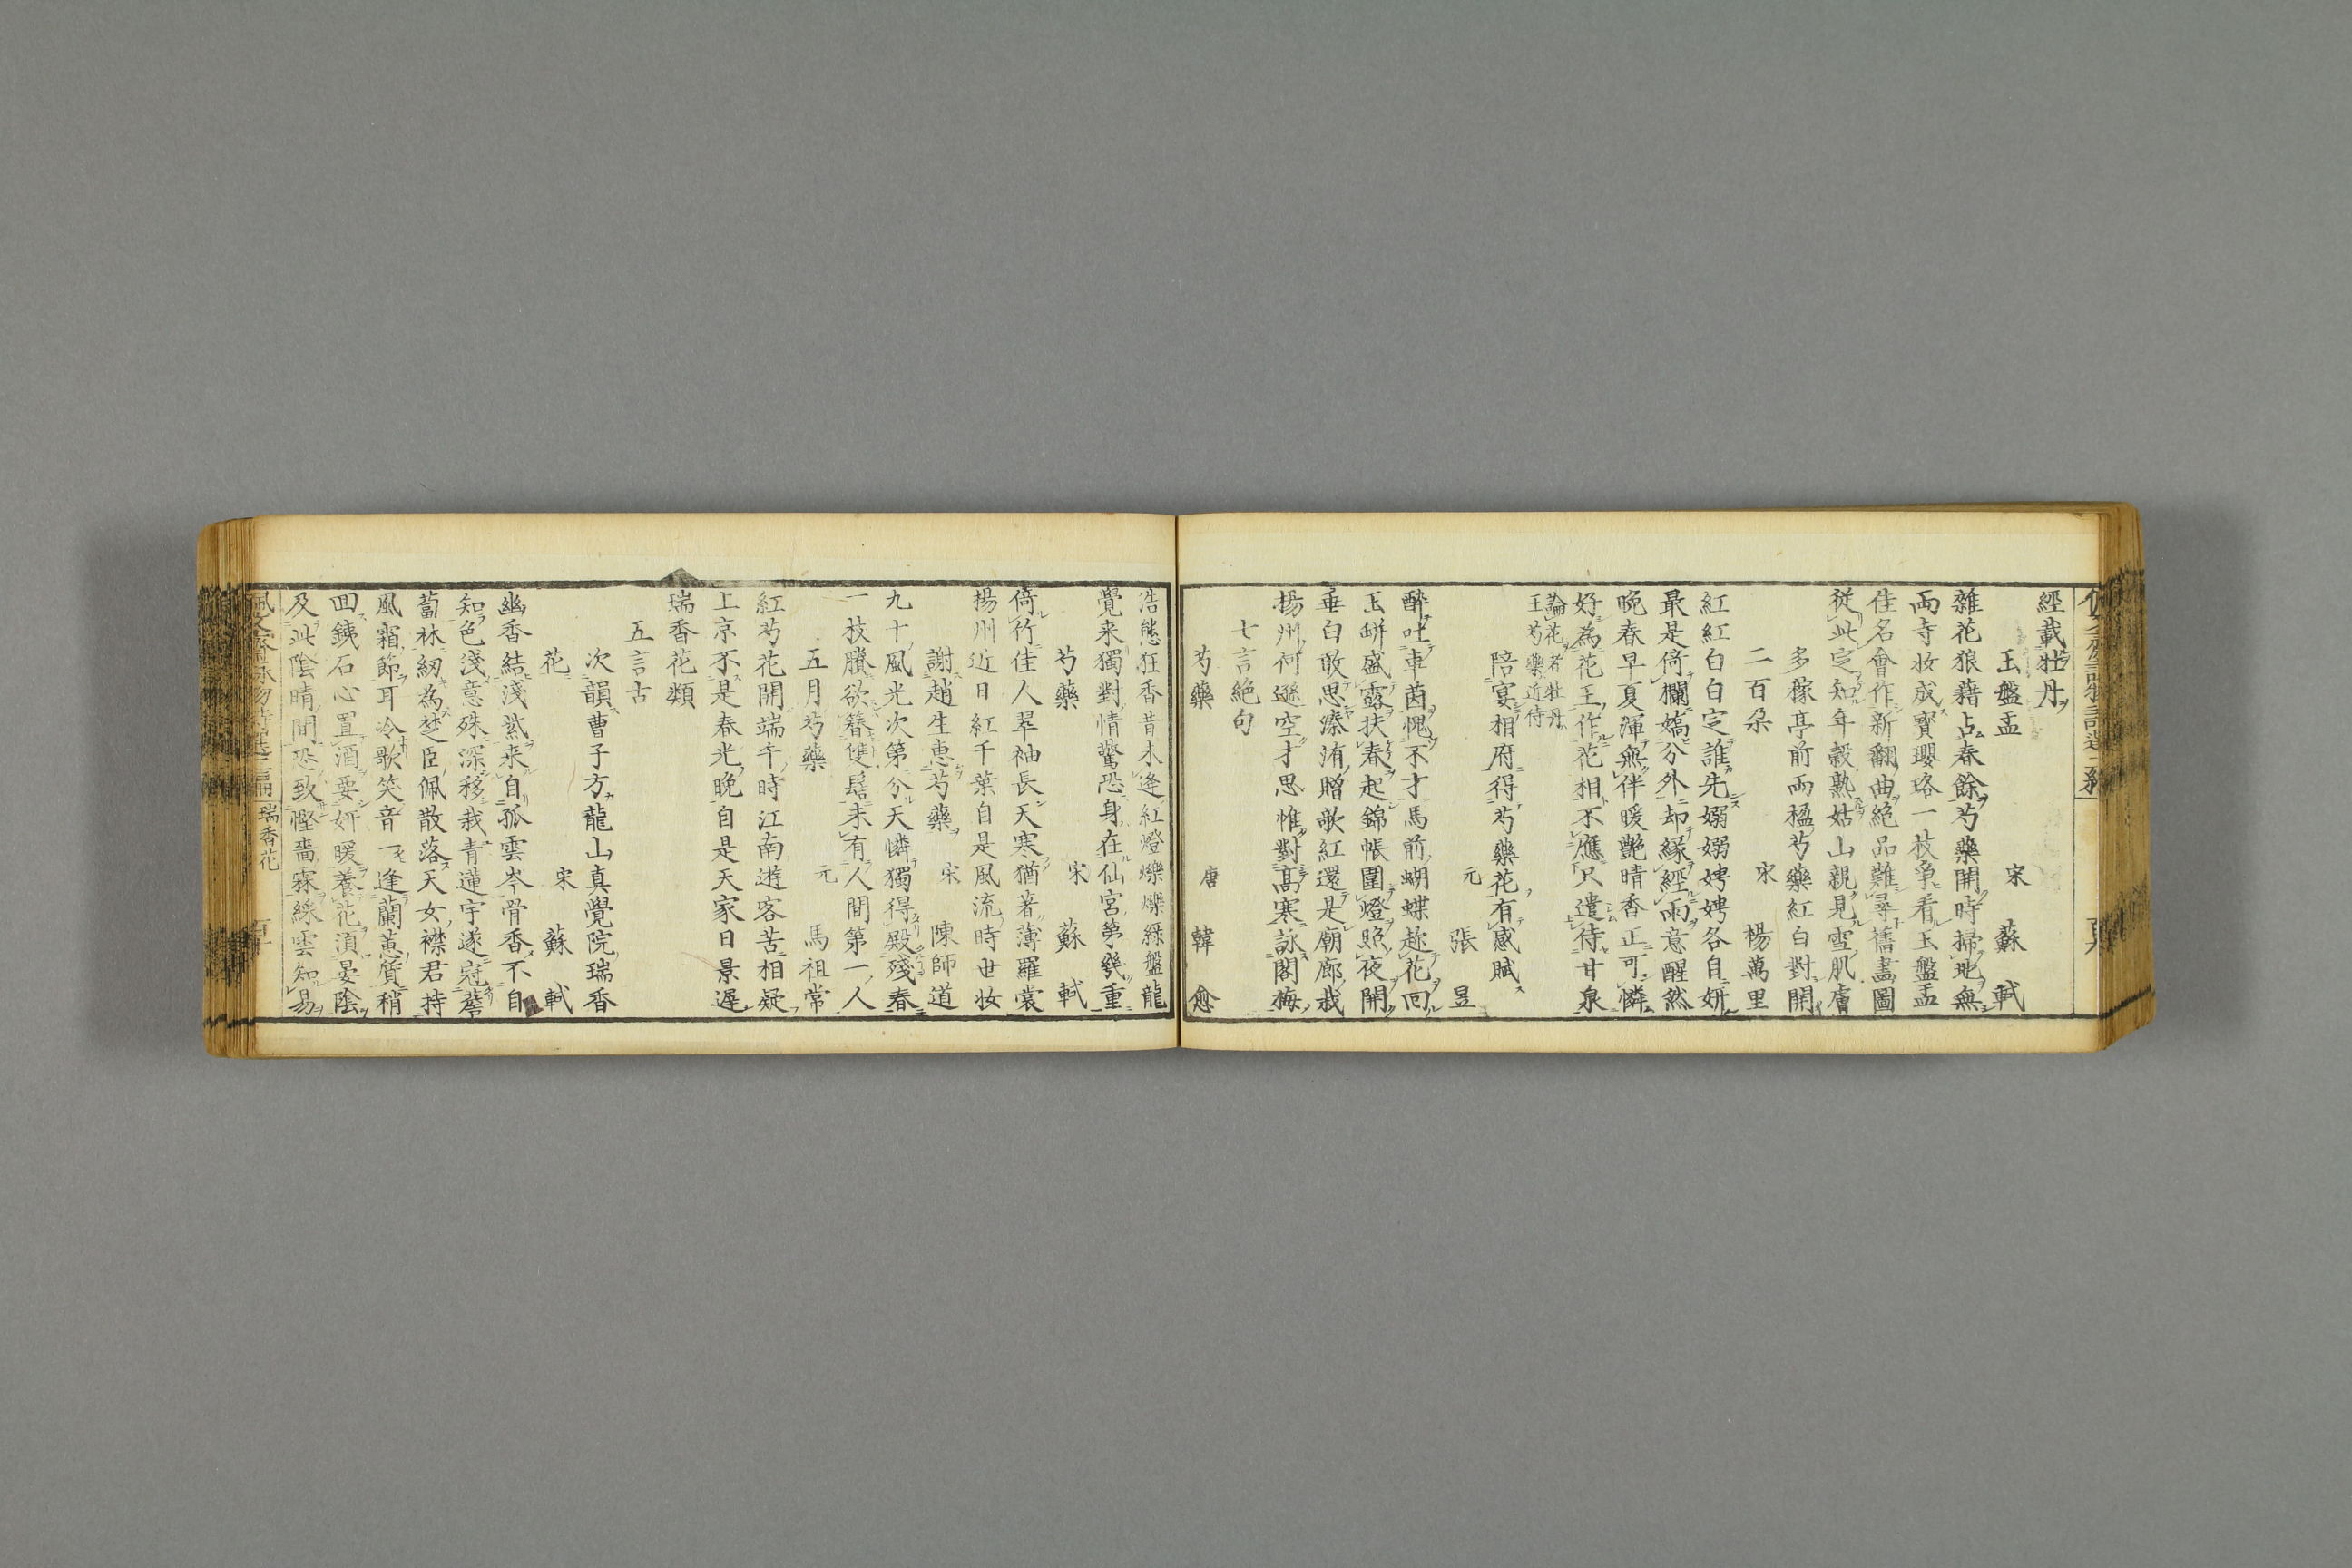 經載牡丹
玉盤盂 宋 蘇軾
雜花狼藉占春餘芍藥開時掃地無
兩寺妝成寶瓔珞一枝爭看玉盤盂
佳名會作新翻曲絕品難尋舊畫圖
從此定知年穀熟姑山親見雪肌膚
多稼亭前兩檻芍藥紅白對開
二百朶 宋 楊萬里
紅紅白白定誰先嫋嫋娉娉各自妍
最是倚欄嬌分外却緣經雨意醒然
晚春早夏渾無伴暖艷晴香正可憐
好為花王作花相不應只遣侍甘泉
論花者牡丹
王芍藥近侍
陪宴相府得芍藥花有感賦
元 張昱
醉吐車茵愧不才馬前蝴蝶趂花回
玉缾盛露扶春起錦帳圍燈照夜開
垂白敢思溱洧贈歌紅還是廟廊裁
揚州何遜空才思惟對高寒詠閣梅
七言絕句
芍藥 唐 韓愈
浩態狂香昔未逢紅燈爍爍綠盤龍
覺來獨對情驚恐身在仙宮第幾重
芍藥 宋 蘇軾
倚竹佳人翠袖長天寒猶著薄羅裳
揚州近日紅千葉自是風流時世妝
謝趙生惠芍藥 宋 陳師道
九十風光次第分天憐獨得殿殘春
一枝賸欲簪雙髻未有人間第一人
五月芍藥 元 馬祖常
紅芍花開端午時江南遊客苦相疑
上京不是春光晚自是天家日景遲
瑞香花類
五言古
次韻曹子方龍山真覺院瑞香
花 宋 蘇軾
幽香結淺紫來自孤雲岑骨香不自
知色淺意殊深移栽青蓮宇遂冠薝
蔔林紉為楚臣佩散落天女襟君持
風霜節耳冷歌笑音一逢蘭蕙質稍
回鐵石心置酒要妍暖養花須晏陰
及此陰晴間恐致慳嗇霖綵雲知易
佩文齋詠物詩選二編 瑞香花